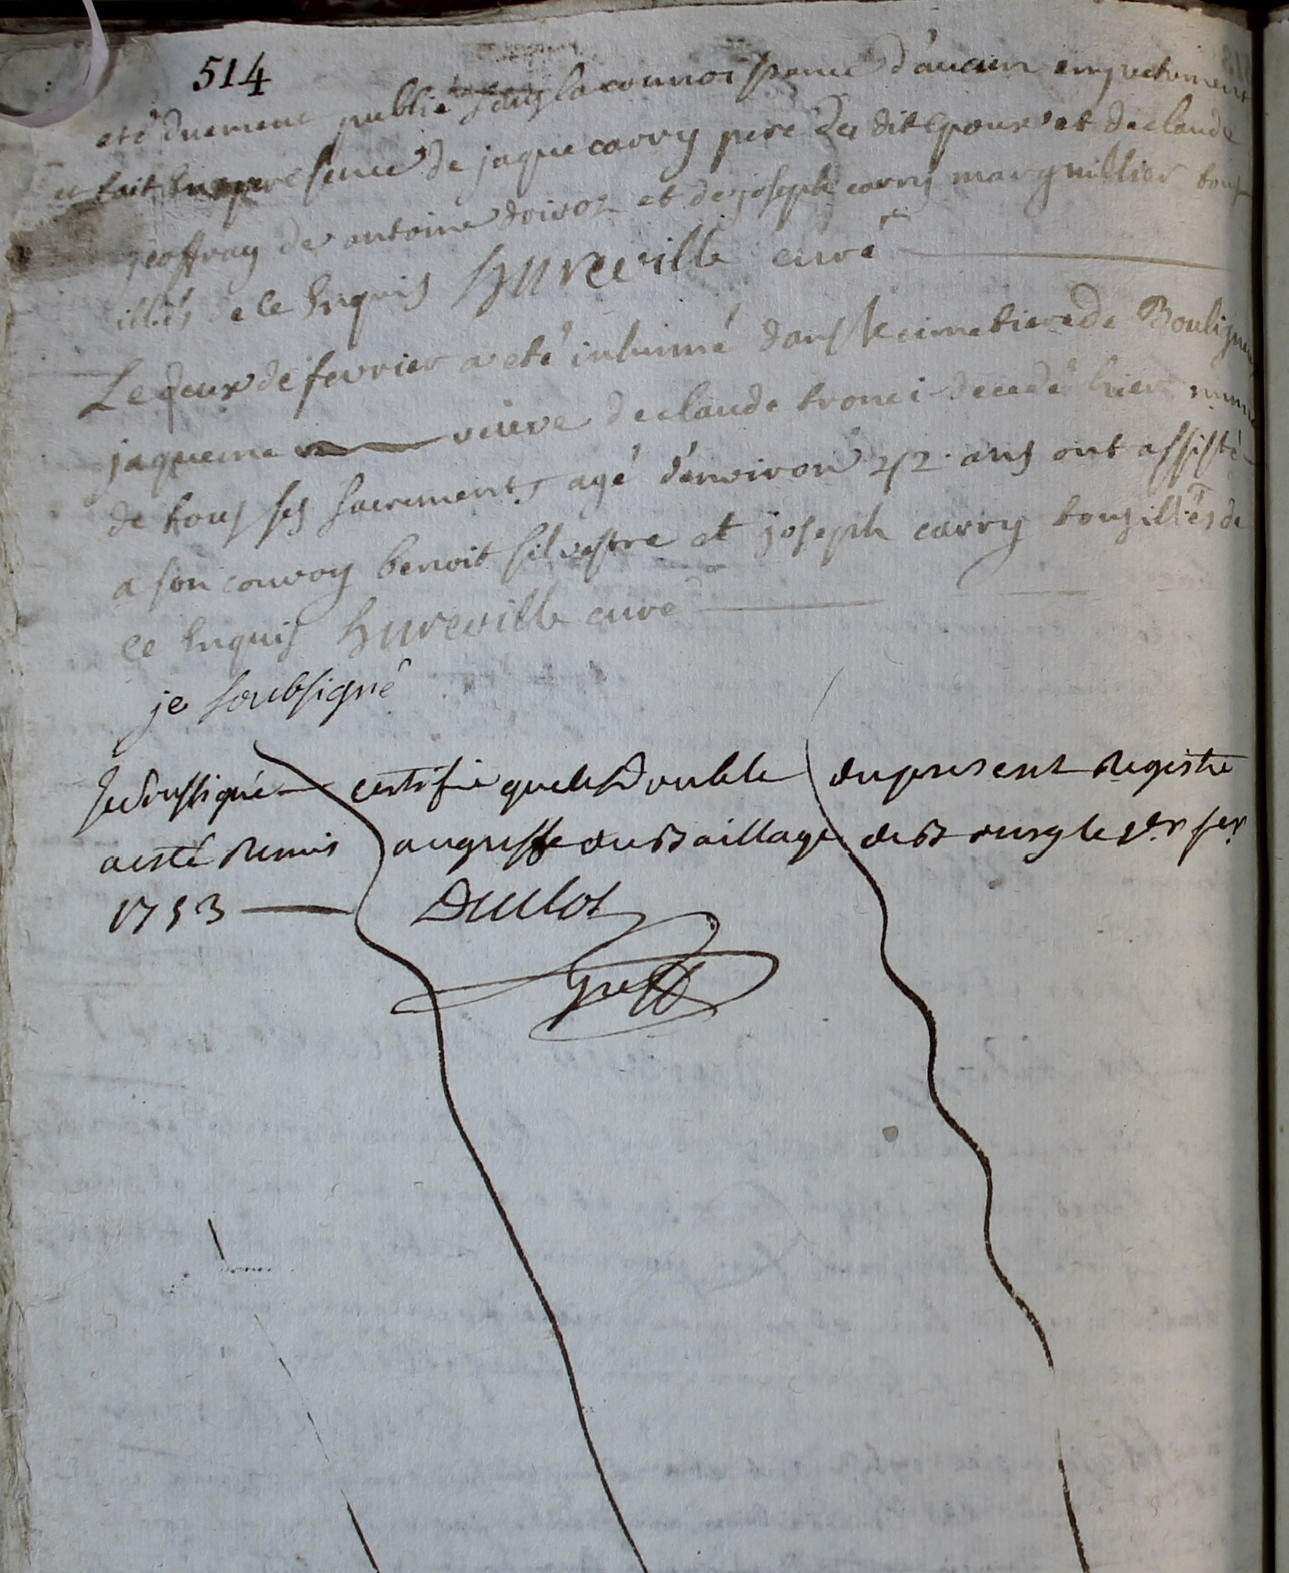 514
eté duement publié sans la connoissance d'aucun empechement
et fait en presence de jaque carry pere du dit Epoux et de claude
geoffray de antoine et de joseph carry marguillier tous
illiés de ce enquis hureville curé
Le deux de fevrier a eté inhumé dans le cimetiere de Bouligneu
jaqueme veuve de claude tronci decedé hier munie
de tous ses sacrements agé d'environ ans ont assisté
a son convoy benoit silvestre et joseph carry tous illiés de
ce enquis hureville curé
je soubsigné
Je soussigné certifie que le Double du present Registre
a esté Remis au greffe du Baillage de Bourg le
1753 Duclot
Greff